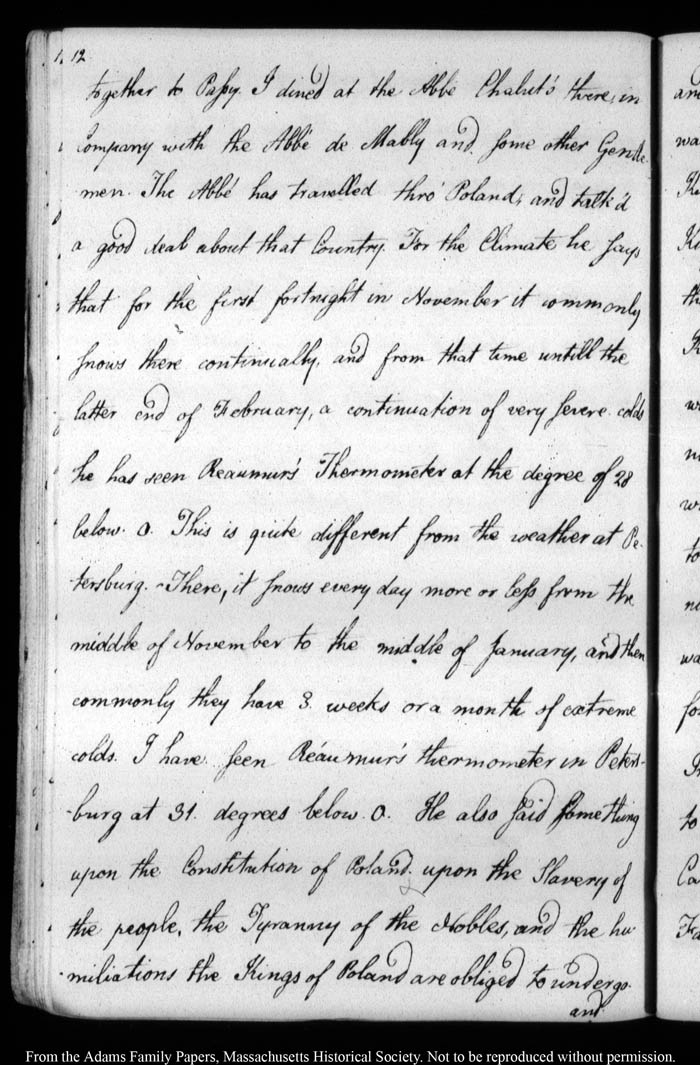 12
together to Passy. I dined at the Abbé Chalut's there, in
Company with the Abbé de Mably and some other Gentle-
men. The Abbé has travelled thro' Poland; and talk'd
a good deal about that Country. For the Climate he says
that for the first fortnight in November it commonly
snows there continually, and from that time untill the
latter end of February, a continuation of very severe colds
he has seen Reaumur's Thermometer at the degree of 28
below. 0. This is quite different from the weather at Pe-
tersburg. There, it snows every day more or less from the
middle of November to the middle of January, and then
commonly they have 3. weeks or a month of extreme
colds. I have seen Réaumur's thermometer in Peters-
-burg at 31. degrees below. 0. He also said something
upon the Constitution of Poland, upon the Slavery of
the people, the Tyranny of the Nobles, and the hu-
miliations the Kings of Poland are obliged to undergo.
and
From the Adams Family Papers, Massachusetts Historical Society. Not to be reproduced without permission.